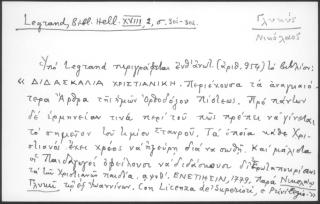 Legrand, Bibl. Hell. XVIII, 2, σ. 301-302.
Γλυκύς
Νικόλαος
Ὑπὸ Legrand περιγράφεται (ἀριθ. 954) τὸ βιβλίον:
« ΔΙΔΑΣΚΑΛΙΑ ΧΡΙΣΤΙΑΝΙΚΗ. Περιέχουσα τὰ ἀναγκαιό-
τερα Ἄρθρα τῆς ἡμῶν Ὀρθοδόξου Πίστεως. Πρὸ πάντων
δὲ ἑρμηνείαν τινὰ περὶ τοῦ πῶς πρέπει νὰ γίνεται
τὸ σημεῖον τοῦ τιμίου Σταυροῦ. Τὰ ὁποῖα κάθε Χρι-
στιανὸς ἔχει χρέος νὰ ἠξεύρῃ διὰ νὰ σωθῇ. Καὶ μάλιστα
οἱ Παιδαγωγοὶ ὀφείλουσι νὰ διδάσκωσι
τὰ τῶν Χριστιανῶν παιδία. ΕΝΕΤΙΗΣΙΝ, 1779. Παρὰ Νικολάῳ
Γλυκεῖ τῷ ἐξ Ἰωαννίνων. Con Licenza de' Superiori, e Privilegio.»